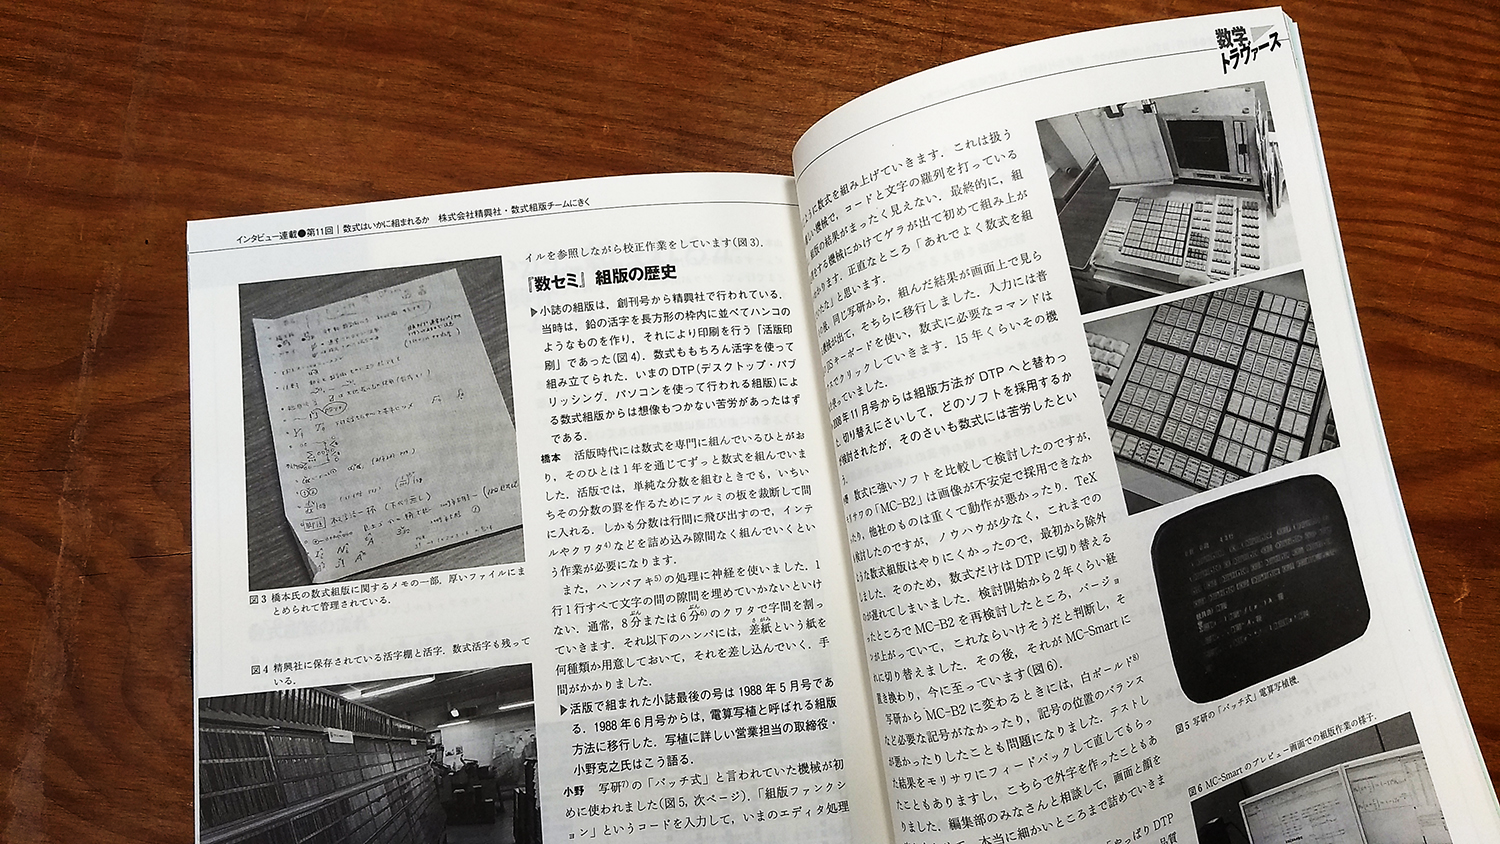 インタビュー連載●第11回｜数式はいかに組まれるか 株式会社精興社・数式組版チームにきく
図3 橋本氏の数式組版に関するメモの一部．厚いファイルにま
とめられて管理されている．
図4 精興社に保存されている活字棚と活字．数式活字も残って
いる．
イルを参照しながら校正作業をしています(図3)．
『数セミ』組版の歴史
▶小誌の組版は，創刊号から精興社で行われている．
当時は，鉛の活字を長方形の枠内に並べてハンコの
ようなものを作り，それにより印刷を行う「活版印
刷」であった(図4)．数式ももちろん活字を使って
組み立てられた．いまのDTP(デスクトップ・パブ
リッシング．パソコンを使って行われる組版)によ
る数式組版からは想像もつかない苦労があったはず
である．
橋本 活版時代には数式を専門に組んでいるひとがお
り，そのひとは1年を通じてずっと数式を組んでいま
した．活版では，単純な分数を組むときでも，いちい
ちその分数の罫を作るためにアルミの板を裁断して間
に入れる．しかも分数は行間に飛び出すので，インテ
ルやクワタ4)などを詰め込み隙間なく組んでいくとい
う作業が必要になります．
また，ハンパアキ5)の処理に神経を使いました．1
行1行すべて文字の間の隙間を埋めていかないといけ
ない．通常，8分または6分6)のクワタで字間を割っ
ていきます．それ以下のハンパには，差紙という紙を
何種類か用意しておいて，それを差し込んでいく．手
間がかかりました．
▶活版で組まれた小誌最後の号は1988年5月号であ
る．1988年6月号からは，電算写植と呼ばれる組版
方法に移行した．写植に詳しい営業担当の取締役・
小野克之氏はこう語る．
小野 写研7)の「バッチ式」と言われていた機械が初
めに使われました(図5，次ページ)．「組版ファンクシ
ョン」というコードを入力して，いまのエディタ処理
数学
トラヴァース
ように数式を組み上げていきます．これは扱う
しい機械で，コードと文字の羅列を打っている
組版の結果がまったく見えない．最終的に，組
をする機械にかけてゲラが出て初めて組み上が
わかります．正直なところ「あれでよく数式を組
たな」と思います．
後，同じ写研から，組んだ結果が画面上で見ら
機械が出て，そちらに移行しました．入力には普
JISキーボードを使い，数式に必要なコマンドは
スでクリックしていきます．15年くらいその機
使っていました．
年11月号からは組版方法がDTPへと替わっ
切り替えにさいして，どのソフトを採用するか
検討されたが，そのさいも数式には苦労したとい
う．
数式に強いソフトを比較して検討したのですが，
リサワの「MC-B2」は画像が不安定で採用できなか
たり，他社のものは重くて動作が悪かったり．TeX
検討したのですが，ノウハウが少なく，これまでの
ような数式組版はやりにくかったので，最初から除外
しました．そのため，数式だけはDTPに切り替える
のが遅れてしまいました．検討開始から2年くらい経
ったところでMC-B2を再検討したところ，バージョ
ンが上がっていて，これならいけそうだと判断し，そ
れに切り替えました．その後，それがMC-Smartに
置き換わり，今に至っています(図6)．
写研からMC-B2に変わるときには，白ボールド8)
など必要な記号がなかったり，記号の位置のバランス
が悪かったりしたことも問題になりました．テストし
た結果をモリサワにフィードバックして直してもらっ
たこともありますし，こちらで外字を作ったこともあ
りました．編集部のみなさんと相談して，画面と顔を
本当に細かいところまで詰めていきま
「やっぱりDTP
品質
図5 写研の「バッチ式」電算写植機．
図6 MC-Smartのプレビュー画面での組版作業の様子．